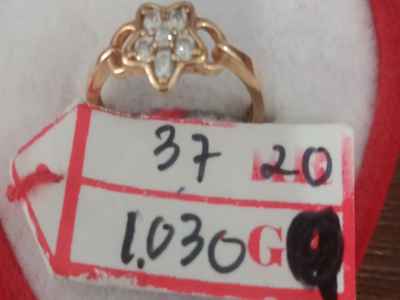 37 20
1.030 G